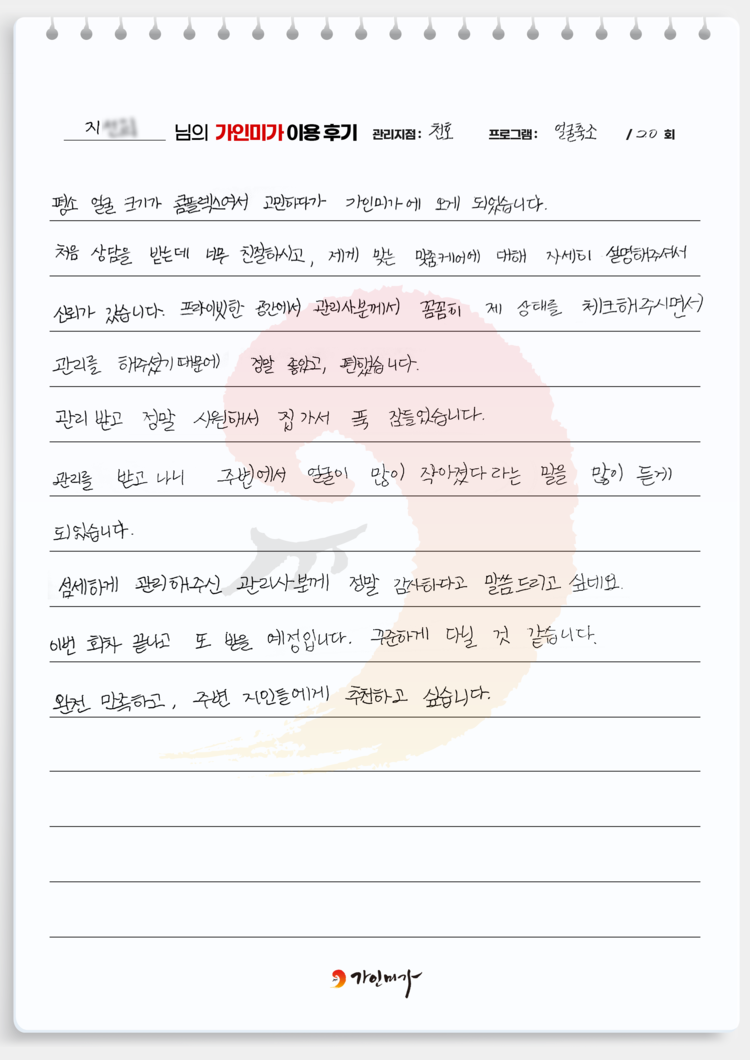 지 님의 가인미가 이용 후기 관리지점 : 천호 프로그램 : 얼굴축소 / 20 회
평소 얼굴 크기가 콤플렉스여서 고민하다가 가인미가에 오게 되었습니다.
처음 상담을 받는데 너무 친절하시고, 제게 맞는 맞춤케어에 대해 자세히 설명해주셔서
신뢰가 갔습니다. 프라이빗한 공간에서 관리사분께서 꼼꼼히 제 상태를 체크해주시면서
관리를 해주셨기때문에 정말 좋았고, 편했습니다.
관리 받고 정말 시원해서 집 가서 푹 잠들었습니다.
관리를 받고 나니 주변에서 얼굴이 많이 작아졌다 라는 말을 많이 듣게
되었습니다.
섬세하게 관리해주신 관리사분께 정말 감사하다고 말씀드리고 싶네요.
이번 회차 끝나고 또 받을 예정입니다. 꾸준하게 다닐 것 같습니다.
완전 만족하고, 주변 지인들에게 추천하고 싶습니다.
가인미가